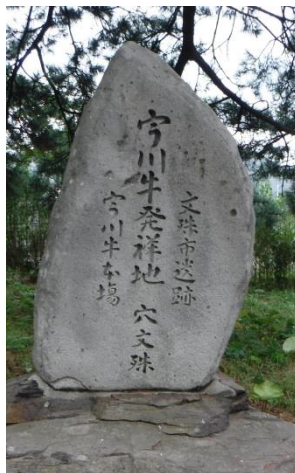 文珠市迹跡
宇川牛発祥地 穴文珠
宇川牛市場